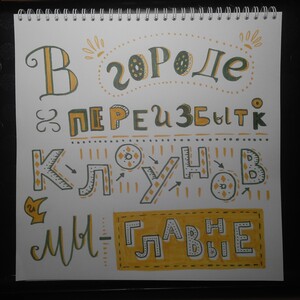 В ГОРОДЕ
ПЕРЕИЗБЫТОК
КЛОУНОВ
МЫ - ГЛАВНЫЕ